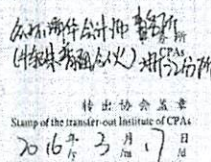 众环海华会计师事务所
(特殊普通合伙)浙江分所
CPAs
转出协会盖章
Stamp of the transfer-out Institute of CPAs
2016年3月17日
/y /m /d